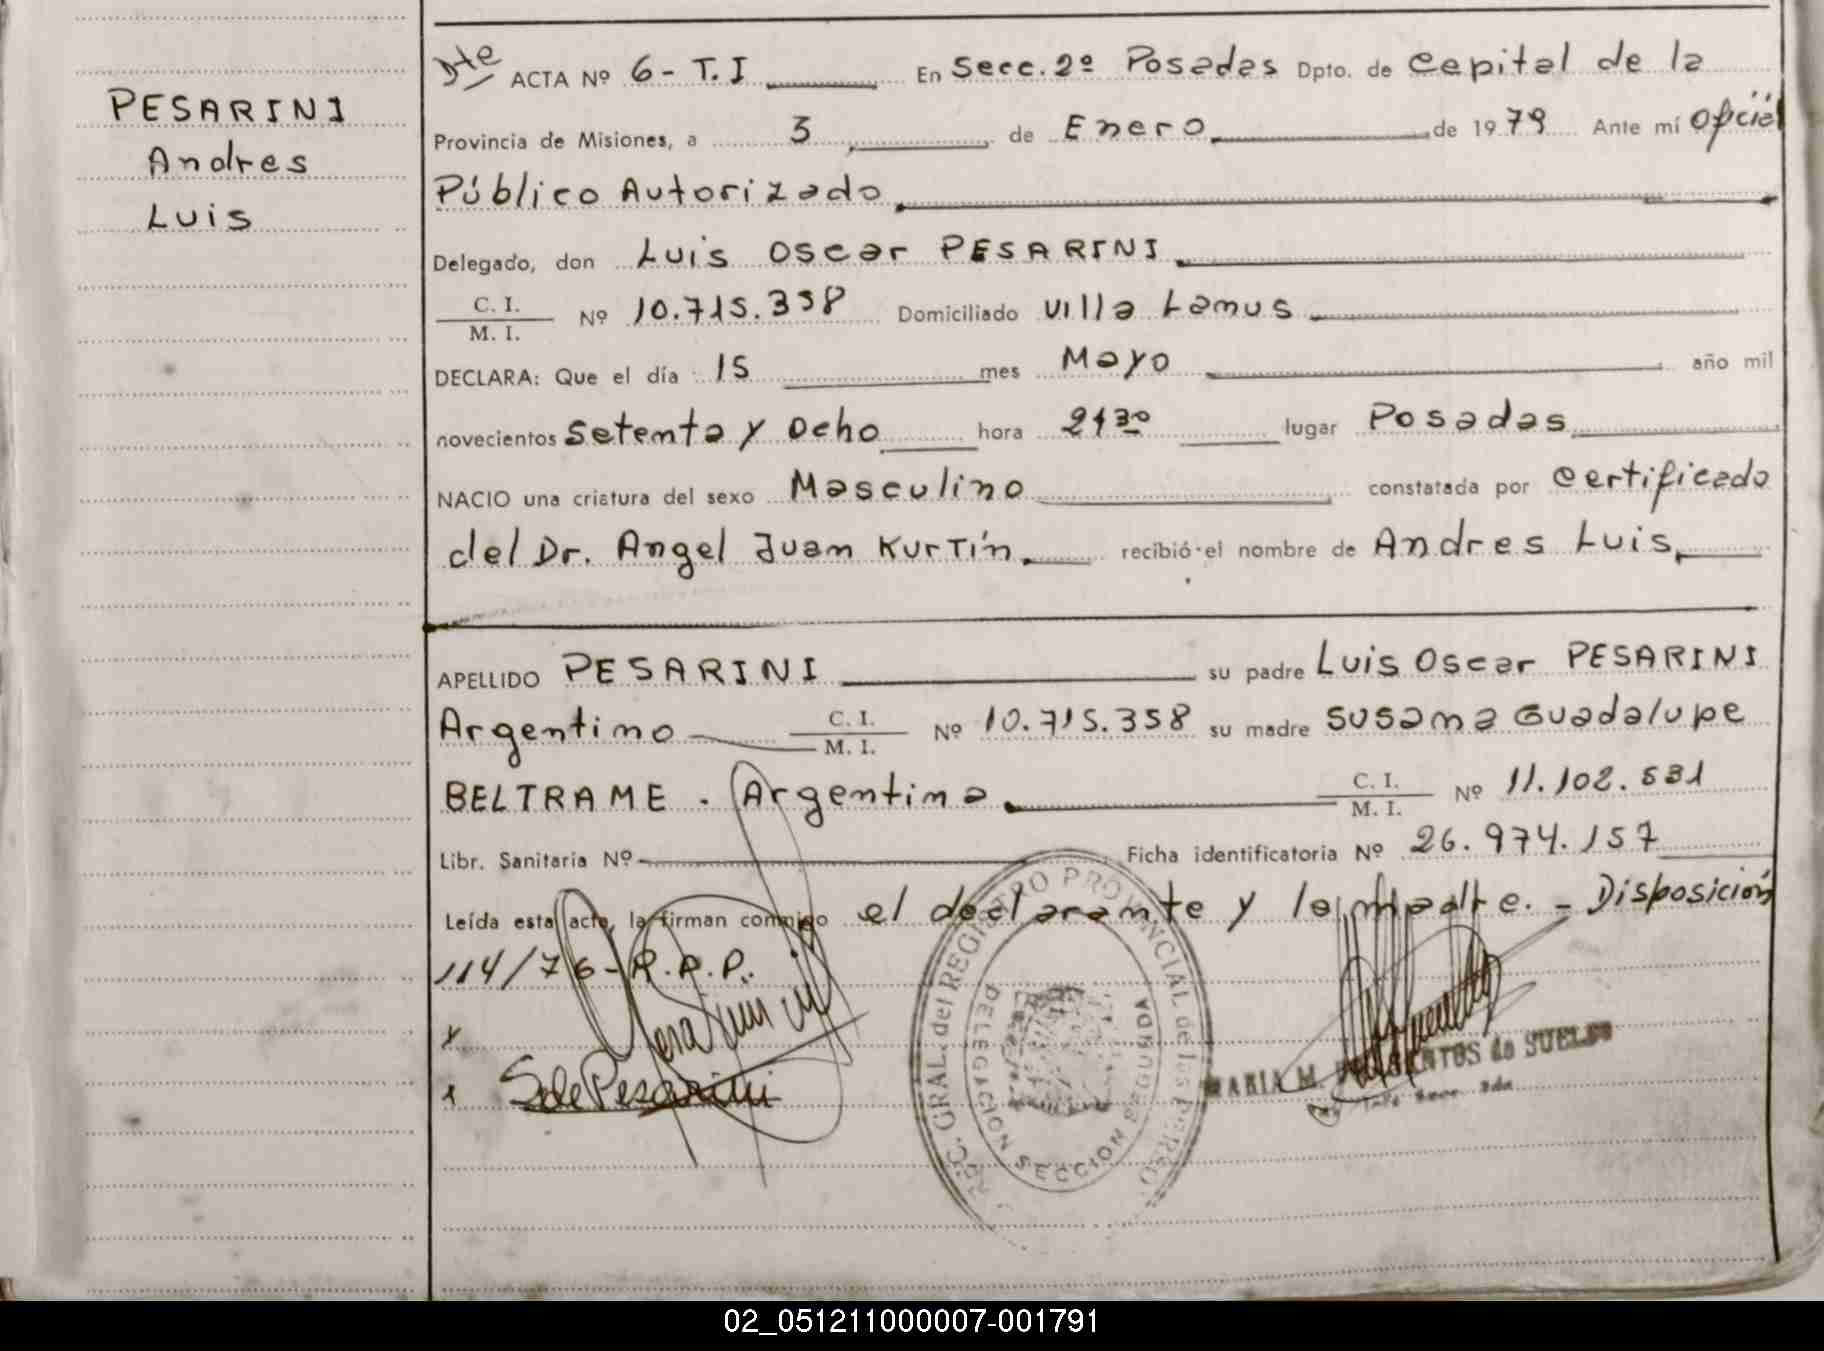 PESARINI
Andres
Luis
Dte ACTA Nº 6- T.I En Secc. 2º Posadas Dpto. de Capital de la
Provincia de Misiones, a 3 de Enero de 1979 Ante mí Oficial
Público Autorizado
Delegado, don Luis Oscar PESARINI
C. I.
M. I.
Nº 10.715.358 Domiciliado Villa Lanus
DECLARA: Que el día 15 mes Mayo año mil
novecientos Setenta y Ocho hora 21 30 lugar Posadas
NACIO una criatura del sexo Masculino constatada por Certificado
del Dr. Angel Juan Kurtín recibió el nombre de Andres Luis
APELLIDO PESARINI su padre Luis Oscar PESARINI
Argentino C. I.
M. I.
Nº 10.715.358 su madre Susana Guadalupe
BELTRAME . Argentina C. I.
M. I.
Nº 11.102.531
Libr. Sanitaria Nº Ficha identificatoria Nº 26.974.157
Leída esta acta, la firman conmigo el declarante y la madre. - Disposición
114/76-R.P.P.
x
x
S de Pesarini
GRAL. del REGISTRO PROVINCIAL de las PERS.
DELEGACION SECCION SEGUNDA
MARIA M. de SUELDO
02_051211000007-001791